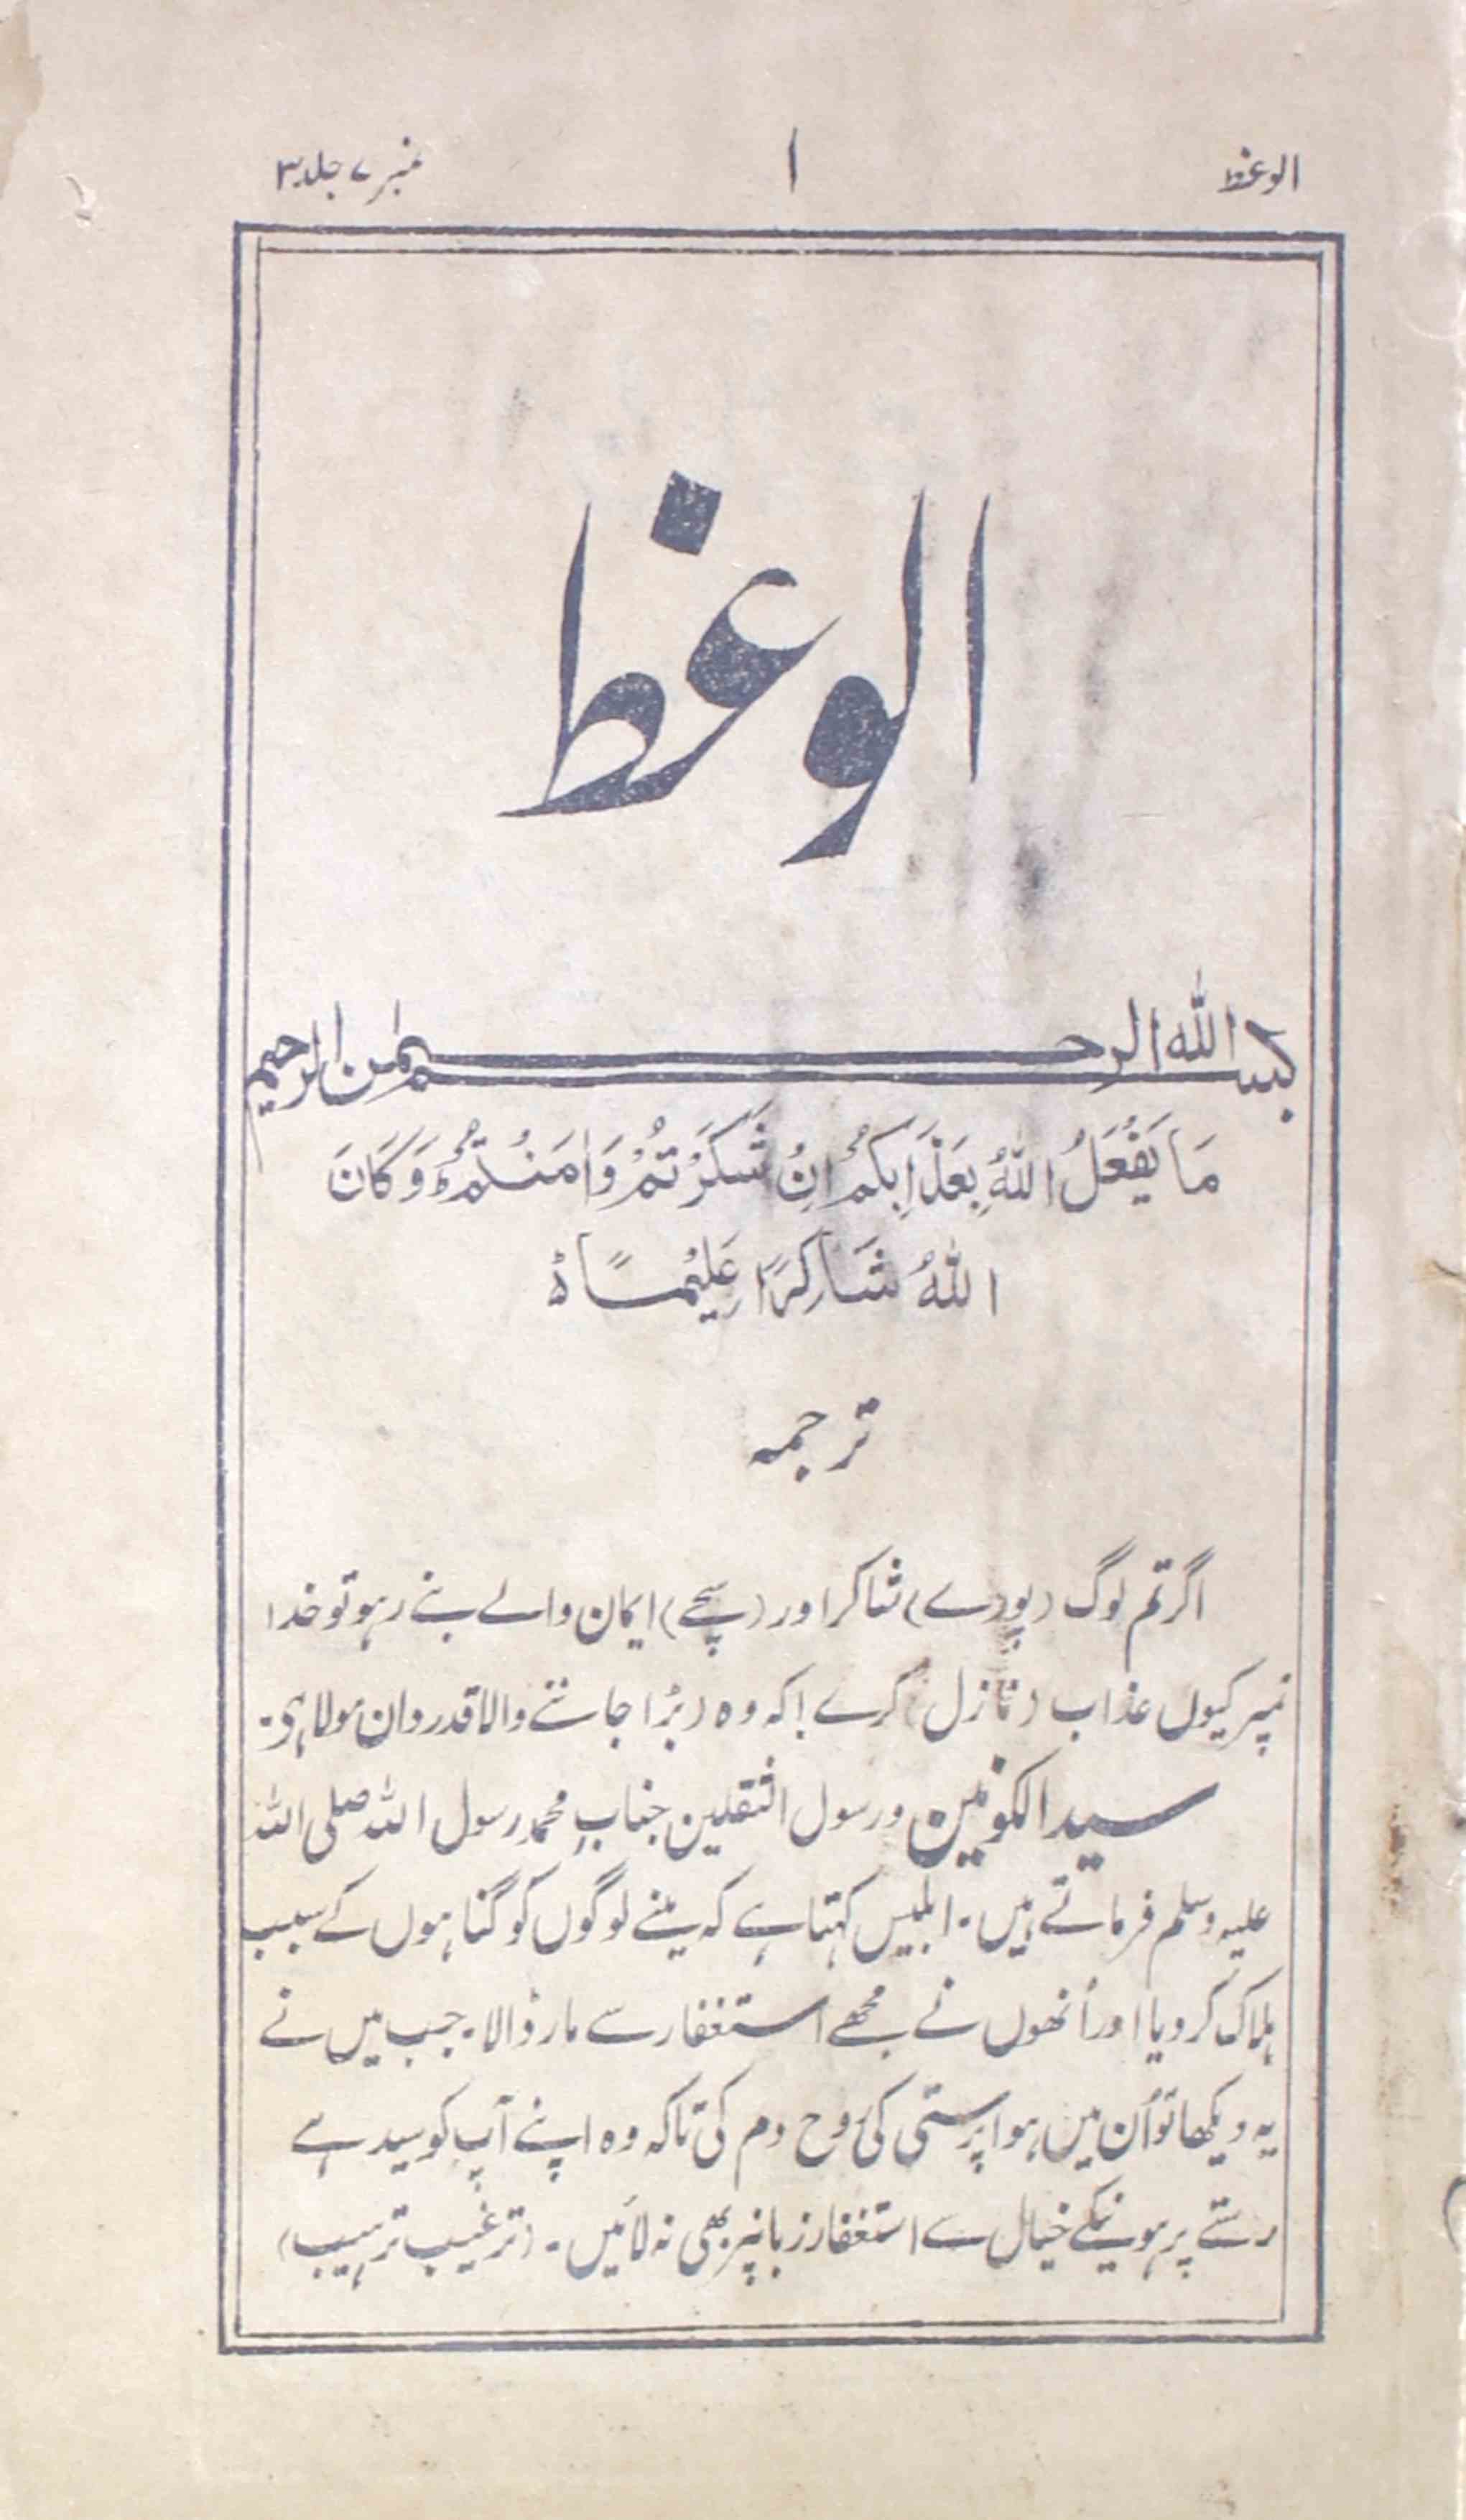 الوعظ ۱ نمبر ۷ جلد ۳
الوعظ
بسم الله الرحمٰن الرحیم
مَا یَفْعَلُ اللهُ بِعَذَابِکُمْ اِنْ شَکَرْتُمْ وَاٰمَنْتُمْ ؕ وَکَانَ
اللهُ شَاکِرًا عَلِیْمًا ۵
ترجمہ
اگر تم لوگ (پورے) شاکر اور (سچے) ایمان والے بنے رہو تو خدا
تمپر کیوں عذاب (نازل) کرے! کہ وہ (بڑا جاننے والا قدردان مولا ہی۔
سید الکونین ورسول الثقلین جنابِ محمد رسول اللہ صلی اللہ
علیہ وسلم فرماتے ہیں۔ ابلیس کہتا ہے کہ مینے لوگوں کو گناہوں کے سبب
ہلاک کردیا اور اُنھوں نے مجھے استغفار سے مار ڈالا۔ جب میں نے
یہ دیکھا تو اُن میں ہوا پرستی کی روح دم کی تاکہ وہ اپنے آپ کو سیدہے
رستے پر ہونیکے خیال سے استغفار زبانپر بھی نہ لائیں۔ (ترغیب ترہیب)